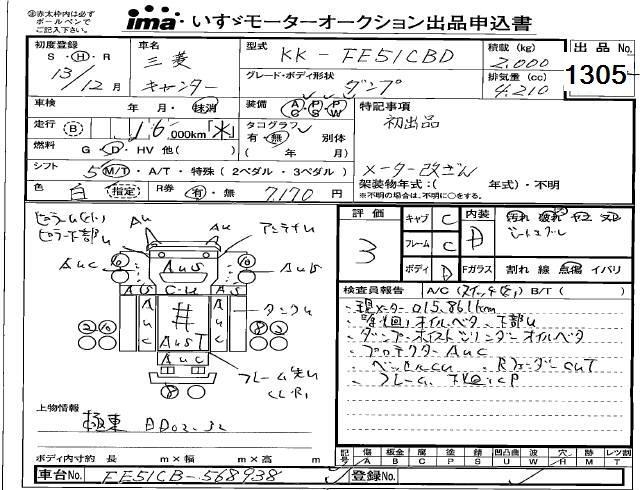 ◎赤太枠内は
ボールペンで
ご記入さい。
ima いすゞモーターオークション出品申込書
初度登録
S・H・R
13/12月
車名
三菱
キャンター
型式
KK-FE51CBD
グレード・ボディ形状
ダンプ
積載(kg)
2,000
排気量(cc)
4,210
出品No.
1305
車検
年 月・抹消
装備 AC PS PW
特記事項
初出品
走行 B 16,000km「*」
タコグラフ
有・無 別体
( 年 月)
燃料 G・D・HV 他( )
メーター改ざん
シフト 5 M/T・A/T・特殊(2ペダル・3ペダル)
架装物年式:( 年式)・不明
※不明の場合は、不明に○をする。
色 白 (指定) R券 有・無 7,170 円
評価
3
キャブ C
フレーム C
ボディ D
内装 D
汚れ 破れ
Fガラス 割れ 線 点傷 イバリ
検査員報告 A/C( ) B/T( )
・現メーター015,861km
オイルベタ、下部U
・ダンプホイストシリンダーオイルベタ
・プロテクターAUC
・ベッセルCU ・RフェンダーCUT
・フレーム、下処:CP
ピラー下部U
AU
アンテナU
AUC
AUS
AUS
AUS
C-U
AUC
#
AUST
AUC
AUC
タンクU
フレーム先U
上物情報
極東 DD02-32
ボディ内寸約 長 m×幅 m×高 m
記号 傷A 板金B 腐C 塗P 錆S 凹凸曲U 波W 穴H 跡M レツ割T
車台No. FE51CB-568938
登録No.